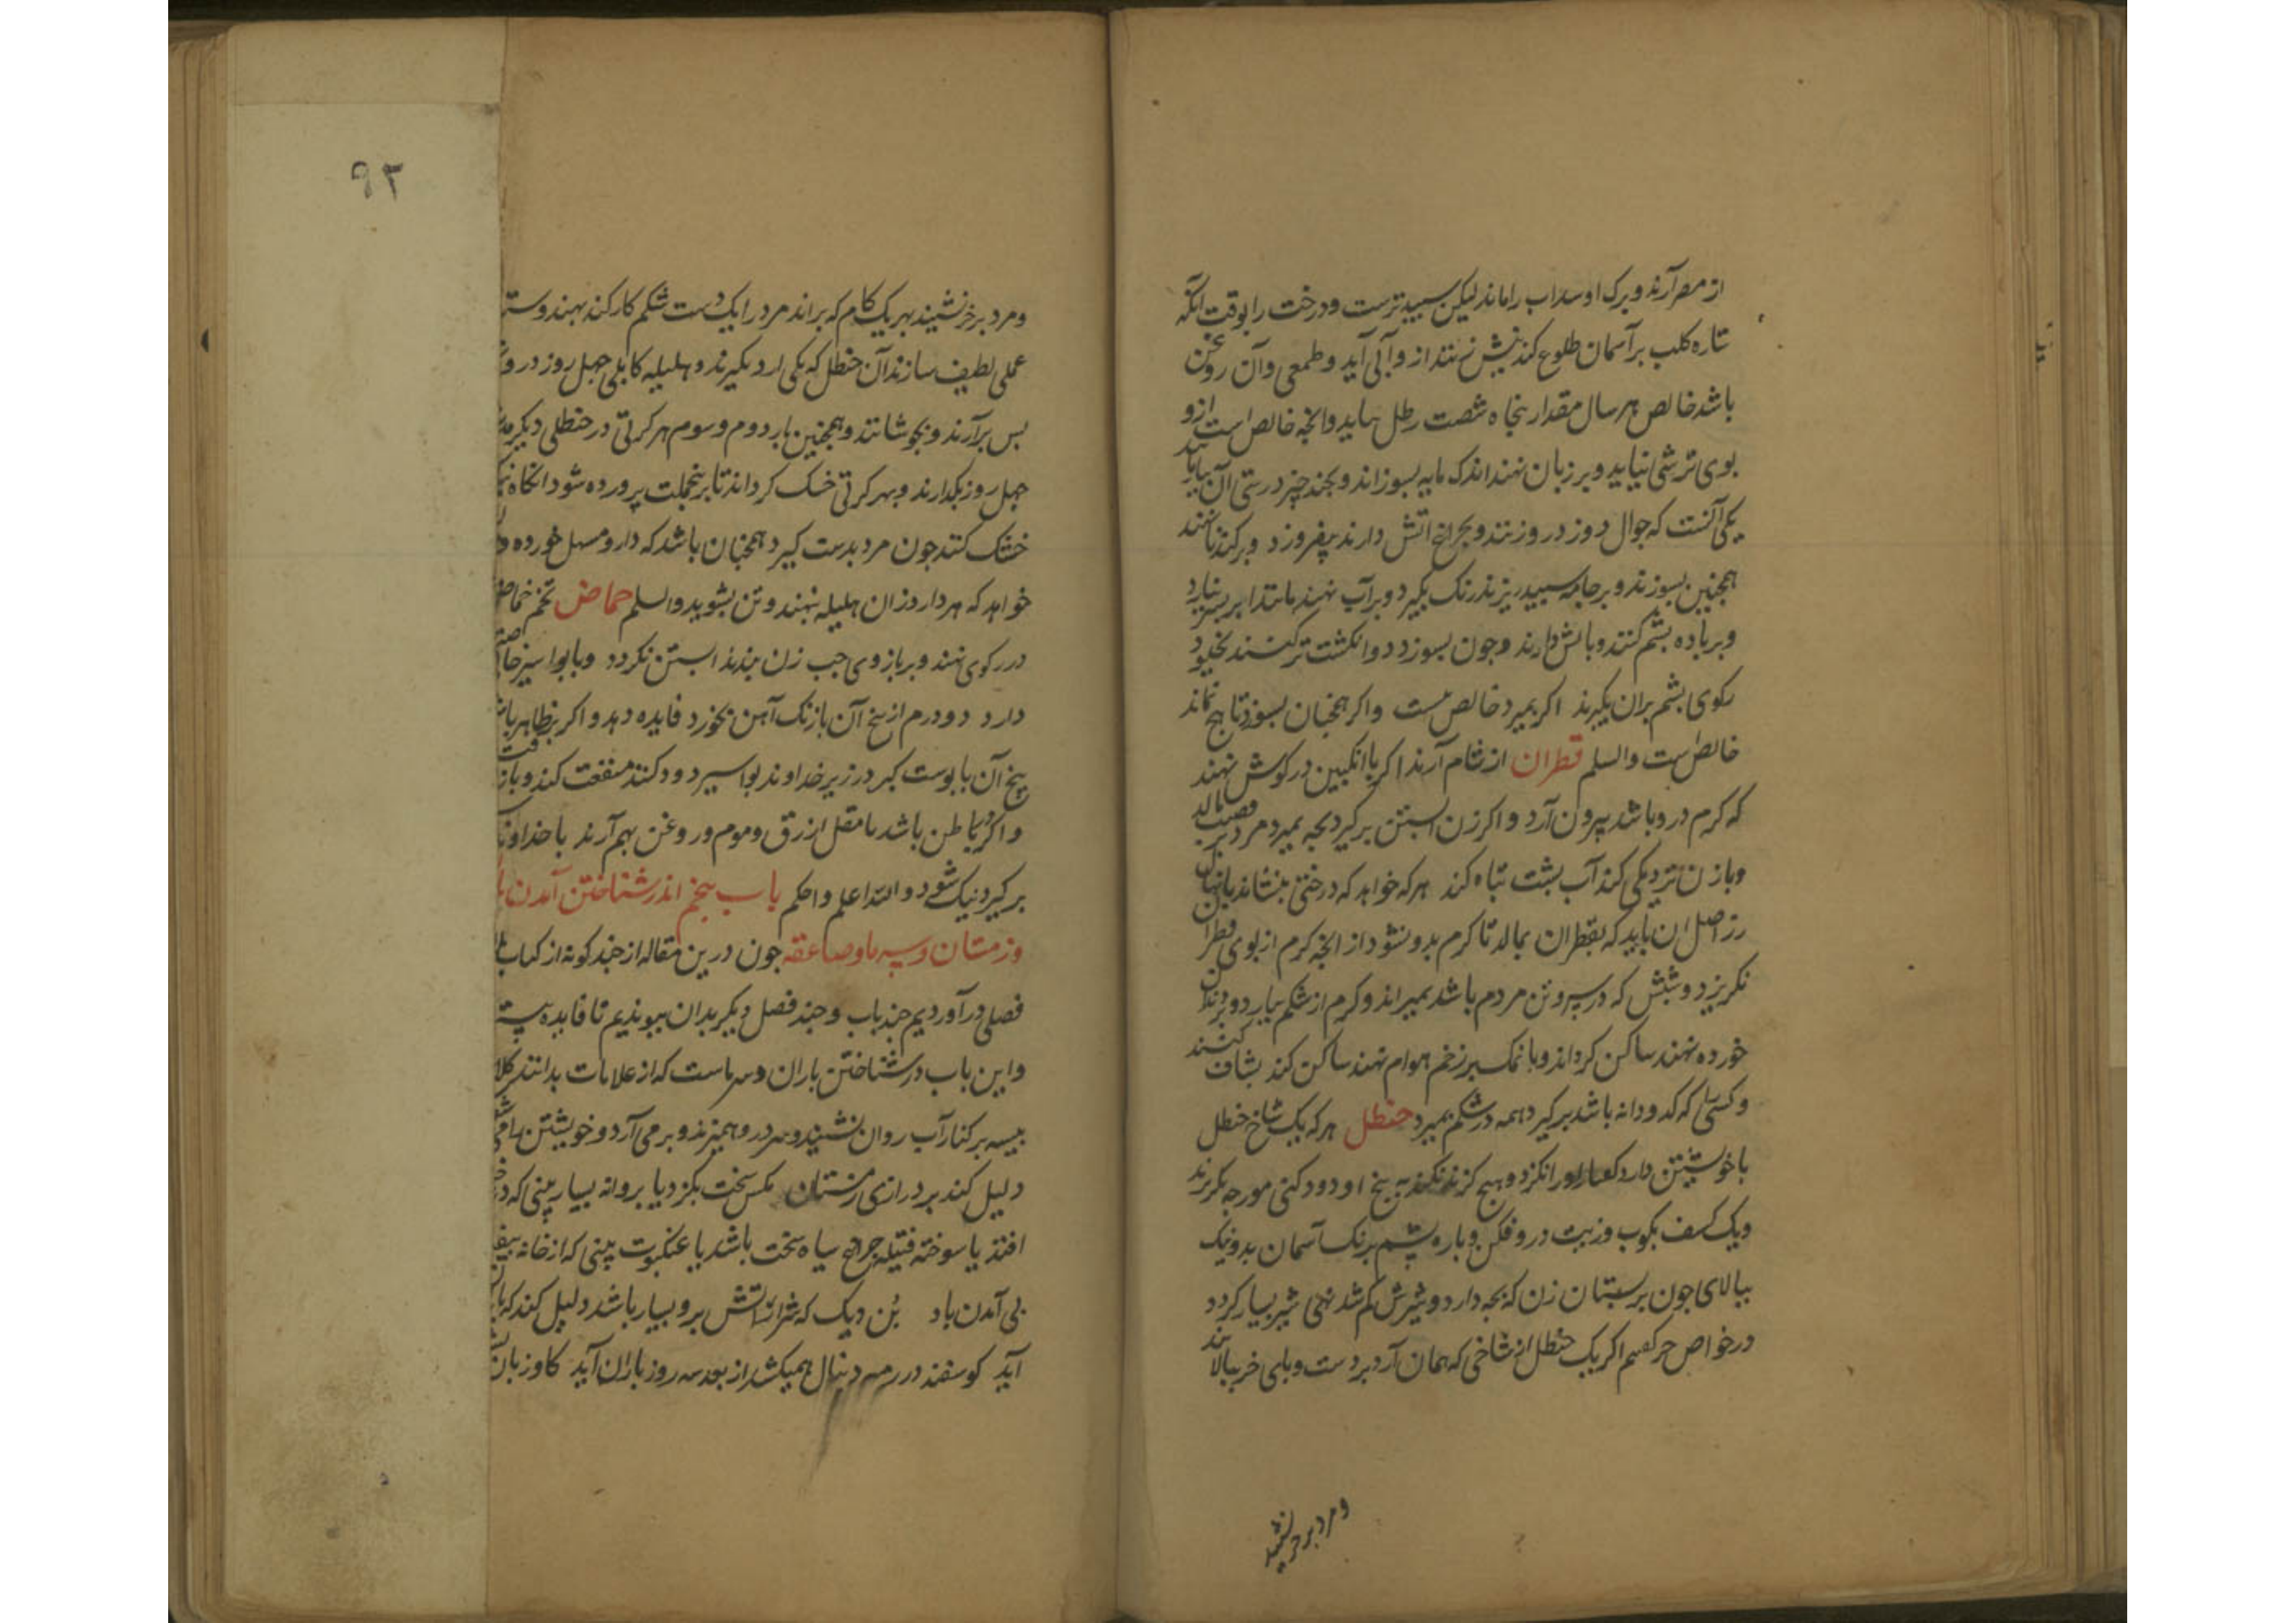 از مصر آرند و برک او سداب را ماند لیکن سپیدترست و درخت را بوقت آنکه
ستاره کلب بر آسمان طلوع کند نیش زنند از و آبی آید و طمعی و آن روغن
باشد خالص هر سال مقدار پنجاه شصت رطل بیاید و انچه خالص است ازو
بوی ترشی نیاید و بر زبان نهند اندک مایه بسوزاند و بچند چیز درستی آن بیابند
یکی آنست که جوال دوز درو زنند و بچراغ آتش دارند بیفروزد و بر کند نا نهند
همچنین بسوزند و بر جامه سپید ریزند رنک نکیرد و بر آب نهند مانند ابر
و بر باده پشم کنند و باتش دارند و چون بسوزد دو انکشت تر کنند
رکوی پشم بران بکیرند اکر بمیرد خالص نیست و اکر همچنان بسوزد تا هیچ نماند
خالص است والسلم قطران از شام آرند اکر با انکبین در کوش نهند
که کرم درو باشد بیرون آرد و اکر زن آبستن برکیرد بچه بمیرد مرد بر قضیب مالد
و با زن نزدیکی کند آب پشت تباه کند هر که خواهد که درختی بنشاند یا نهال
رز اصل آن باید که بقطران بمالد تا کرم بدو نشود از انچه کرم از بوی قطران
بکریزد و شپش که در سر و تن مردم باشد بمیراند و کرم از شکم بیارد و بر دندان
خورده نهند ساکن کرداند و با نمک بر زخم هوام نهند ساکن کند بشاف کنند
و کسی را که کدودانه باشد برکیرد همه در شکم بمیرد حنظل هر که یک شاخ حنظل
با خویشتن دارد او را نکزد و هیچ کزند نکند به بیخ او دود کنی مورچه بکریزند
و یک کف بکوب و زیت درو فکن و پاره پشم برنک آسمان بدو نیک
بیالای چون بر پستان زن که بچه دارد و شیرش کم شد نهی شیر بسیار کردد
در خواص اکر یک حنظل از شاخی که همان آرد بردست و پای خر بندند بالا
و مرد بر خر نشیند
۹۳
و مرد بر خر نشیند بهر یک کام که براند مرد را یک دست شکم کار کند بهندوستان
عملی لطیف سازند آن حنظل که یکی آرد بکیرند و هلیله کابلی چهل روز درو
پس برآرند و بجوشانند و همچنین بار دوم و سوم هر کرتی در حنظلی دیکر
چهل روز بکذارند و بهر کرتی خشک کردانند تا برین جملت پرورده شود انکاه
خشک کنند چون مرد بدست کیرد همچنان باشد که دارو مسهل خورده
خواهد که هر دارو زان هلیله بنهند و تن بشوید والسلم حماض تخم حماض
در رکوی نهند و بر بازوی چپ زن بندند آبستن نکردد و با بواسیر خاصیت
دارد دو درم از بیخ آن با زنک آهن بخورد فایده دهد و اکر بظاهر باشد
بیخ آن با پوست کبر در زیر خداوند بواسیر دود کنند منفعت کند و باز
و اکر بباطن باشد با مقل ازرق و موم و روغن بهم آرند با خداوند
برکیرد نیک شود والله اعلم و احکم باب پنجم اندر شناختن آمدن
و زمستان و سرما و صاعقه چون درین مقاله از چند کونه از کتاب
فصلی درآوردیم چند باب و چند فصل دیکر بدان پیوندیم تا فایده
و این باب در شناختن باران و سرماست که از علامات بدانند
پیسه بر کنار آب روان نشیند و سر درو همیزند و برمی آرد و خویشتن را
دلیل کند بر درازی زمستان مکس سخت بکزد یا پروانه بسیار بینی که
افتد یا سوخته فتیله چراغ سیاه سخت باشد یا عنکبوت بینی که از خانه بیفتد
بی آمدن باد بن دیک که شرار آتش برو بسیار باشد دلیل کند که باران
آید کوسفند در رمه دنبال همیکشد از بعد سه روز باران آید کاو زبان